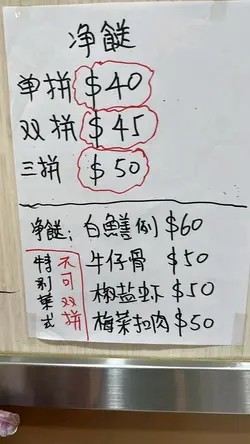 净餸
单拼 $40
双拼 $45
三拼 $50
净餸：白鱔例 $60
牛仔骨 $50
椒盐虾 $50
梅菜扣肉 $50
特别菜式
不可双拼